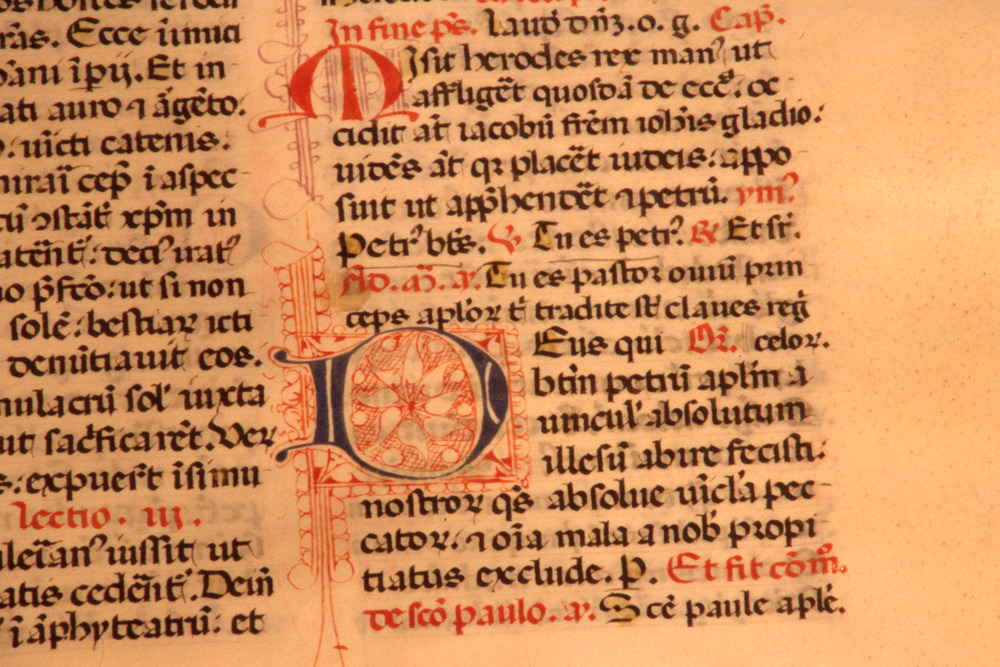 ras. Ecce inimici
ani īpij. Et in
ati auro ⁊ āgēto.
uīcti catenis:
miraī cep̄ ī aspec
cū ꝯstāt̄ xp̄m in
atēnt̄: deciꝰ iratꝰ
o p̄fcō: ut si non
solē: bestiaꝝ icti
denūtiauit eos.
mulacrū sol' iuxta
ut sac̄ficarēt. Ver
s: expuert̄ īsimu
lectio. iij.
ualeīanꝰ iussit ut
atis cedēnt̄. Dein̄
ī āphyteatrū: et
In fine ps̄. Laud̄ dn̄ꝫ. o. g. Cap̄.
Misit herodes rex manꝰ ut
affligēt quosdā de ecc̄. oc
cidit āt iacobū frēm ioh̄is gladio:
uidēs āt qꝛ placēt iudeis: appo
suit ut app̄hendēt ⁊ petrū. ymꝰ
Petrꝰ bt̄s. ℣ Tu es petrꝰ. ℟ Et sr̄.
Ad. m̄. a. Tu es pastor ouiū prin
ceps ap̄loꝝ t̄ tradite st̄ claues reḡ
Deus qui Oŕ. celoꝝ.
btm̄ petrū aplm̄ a
uincul' absolutum
illesū abire fecisti:
nostroꝝ qs̄ absolue uīcl'a pec
catoꝝ: ⁊ oīa mala a nob̄ propi
tiatus exclude. P. Et fit cōm̄.
de scō paulo. a. Sc̄e paule aplē.